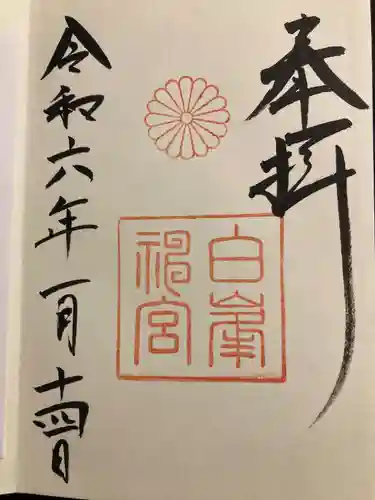 奉拝
白峯
神宮
令和六年一月十四日